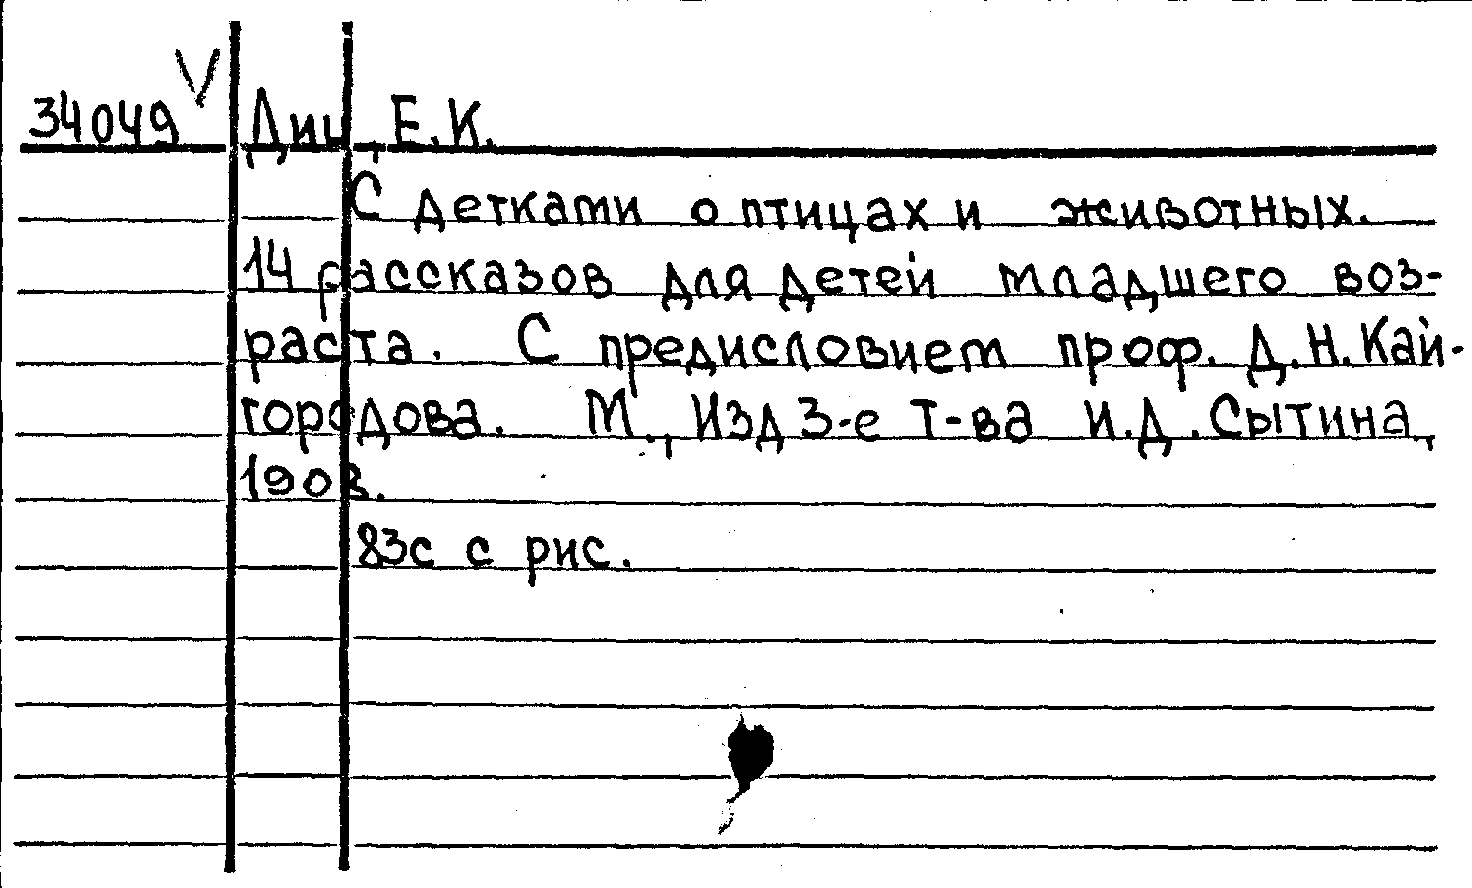 34049 V Диц, Е.К.
С детками о птицах и животных.
14 рассказов для детей младшего воз-
раста. С предисловием проф. Д.Н.Кай-
городова. М., Изд 3-е Т-ва И.Д.Сытина,
83с с рис.